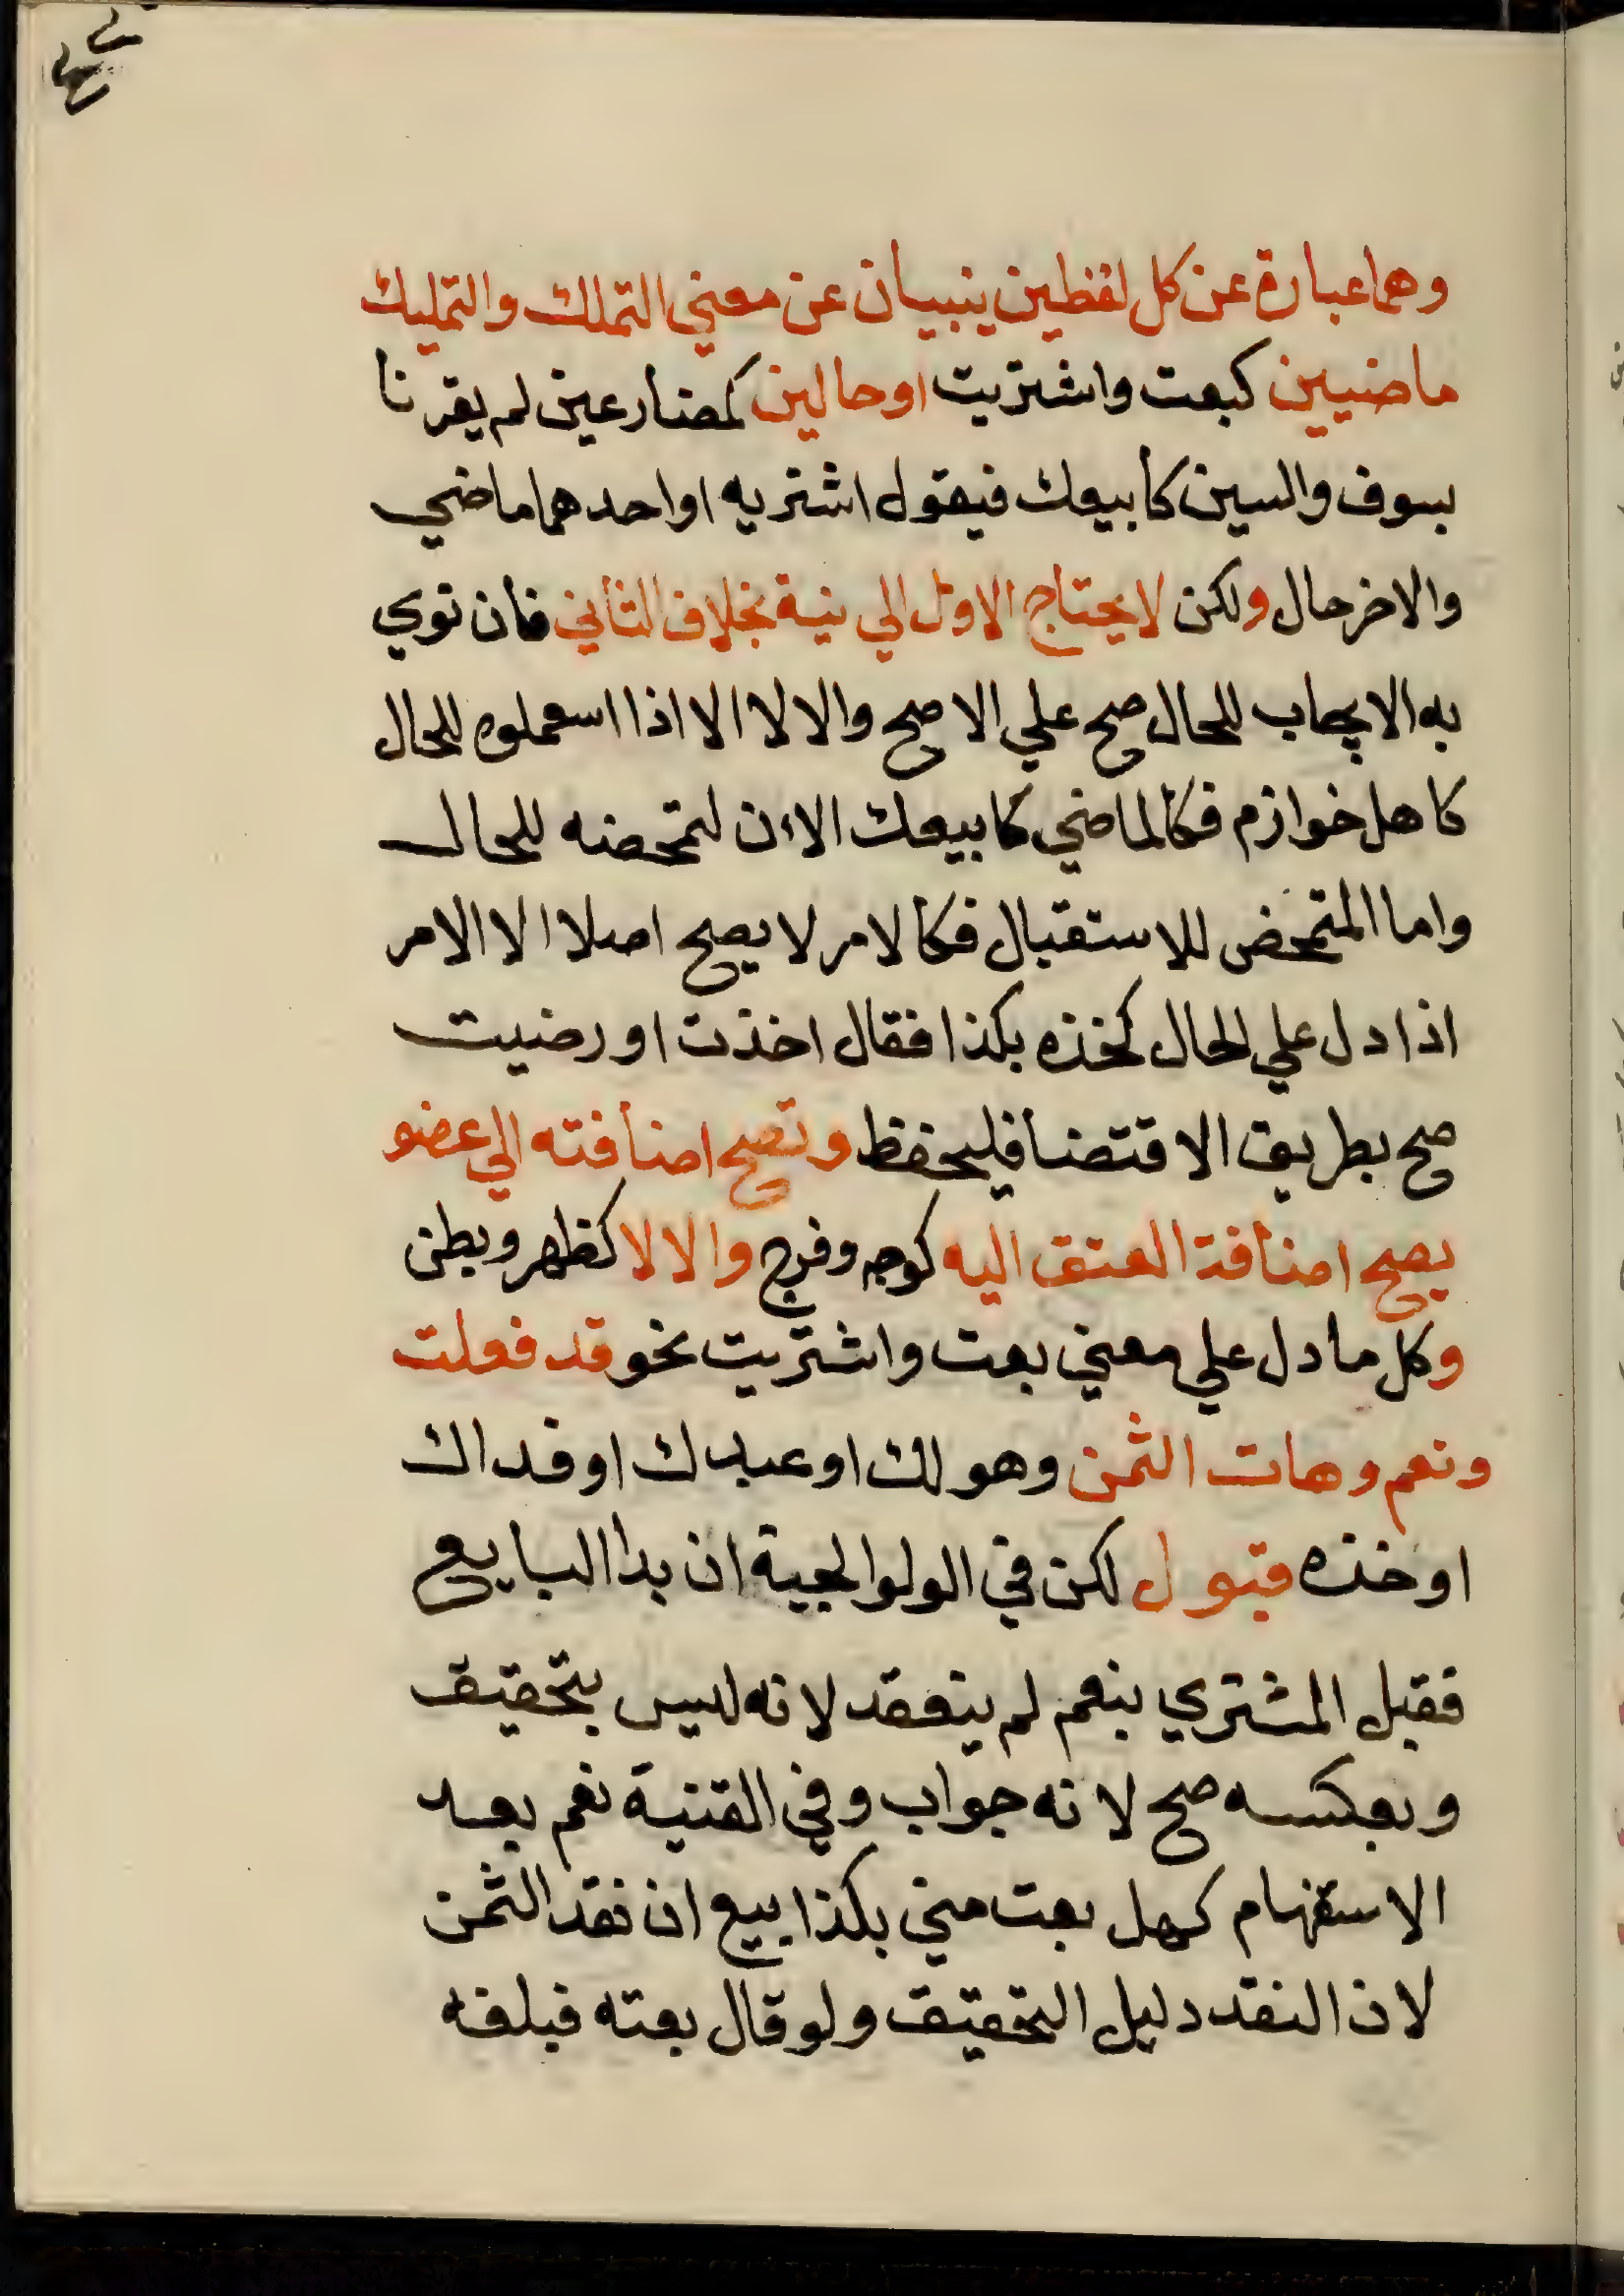 وهما عبارة عن كل لفظين ينبيان عن معني التملك والتمليك
ماضيين كبعت واشتريت او حالين كمضارعين لم يقرنا
بسوف والسين كأبيعك فيقول اشتريه او احدهما ماضي
والاخر حال ولكن لا يحتاج الاول الي نية بخلاف الثاني فان نوي
به الايجاب للحال صح علي الاصح والا لا الا اذا استعملوه للحال
كاهل خوارزم فكالماضي كابيعك الاءن لتمحضه للحال
واما المتمحض للاستقبال فكالامر لا يصح اصلا الا الامر
اذا دل علي الحال كخذه بكذا فقال اخذت او رضيت
صح بطريق الاقتضا فليحفظ وتصح اضافته الي عضو
يصح اضافة العتق اليه كوجه وفرج والا لا كظهر وبطن
وكل ما دل علي معني بعت واشتريت نحو قد فعلت
ونعم وهات الثمن وهو لك او عبدك او فداك
او خذه قبول لكن في الولوالجية ان بدا البايع
فقبل المشتري بنعم لم ينعقد لانه ليس بتحقيق
وبعكسه صح لانه جواب وفي القنية نعم بعد
الاستفهام كهل بعت مني بكذا بيع ان نقد الثمن
لان النقد دليل التحقيق ولو قال بعته فبلغه